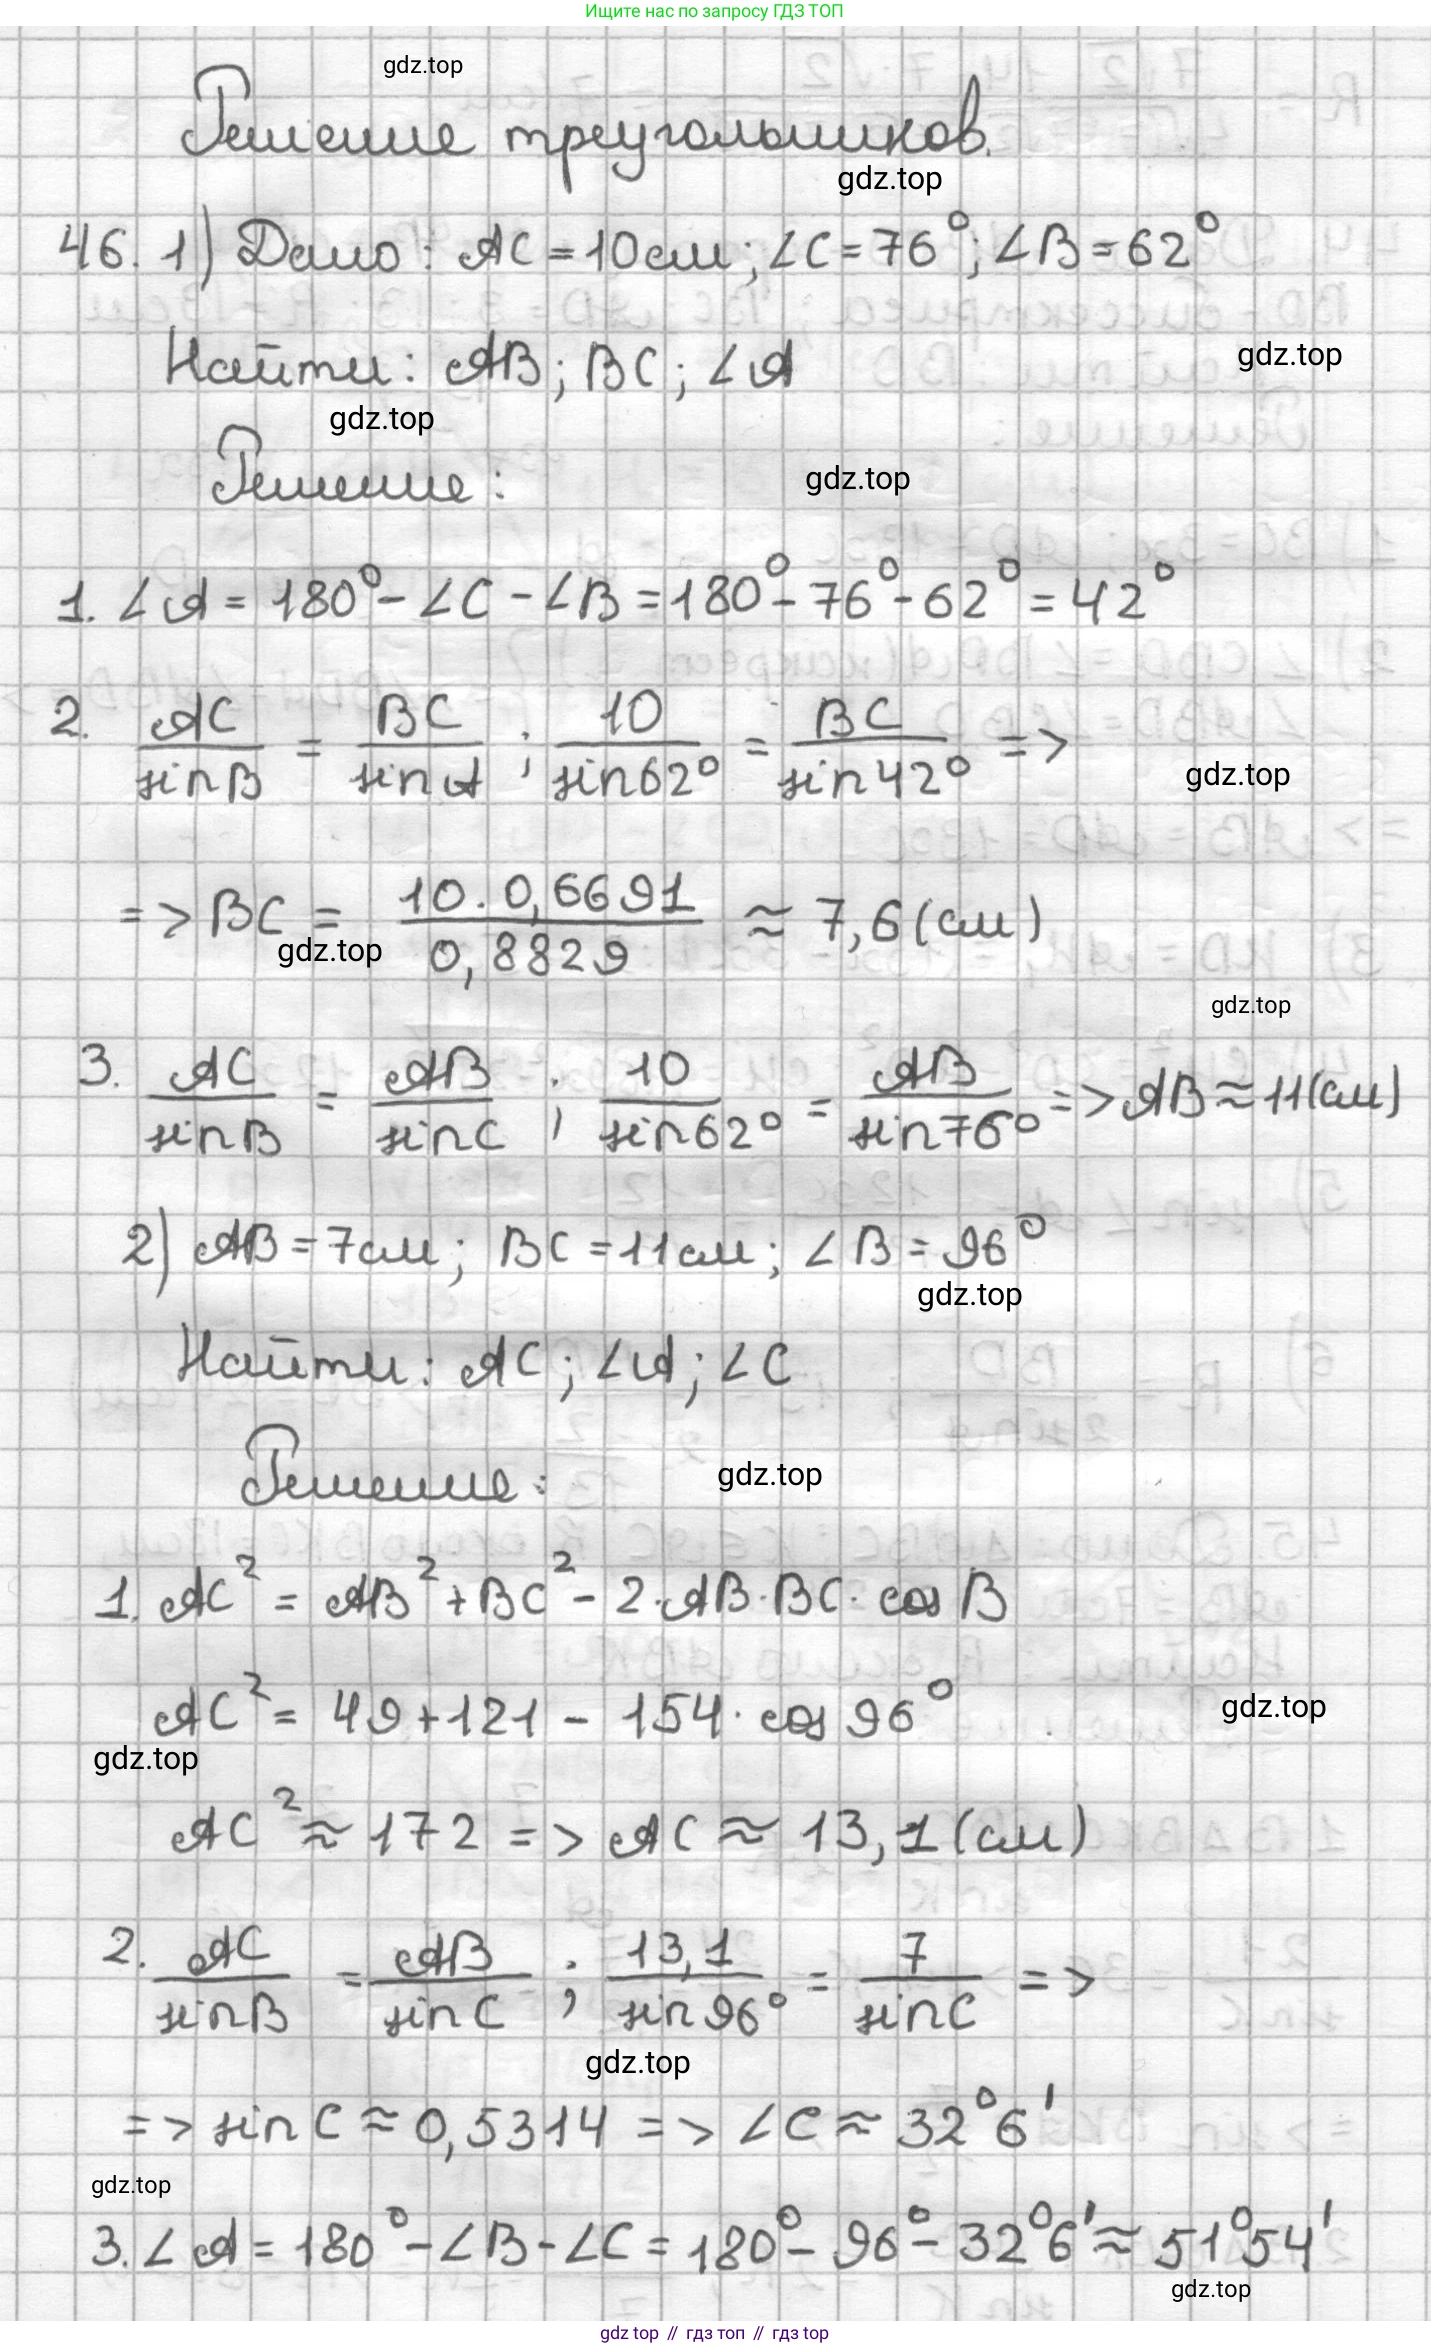 Ищите нас по запросу ГДЗ ТОП
gdz.top
Решение треугольников.
gdz.top
46. 1) Дано: AC = 10 см; ∠C = 76°; ∠B = 62°
Найти: AB; BC; ∠A
gdz.top
gdz.top
Решение:
gdz.top
1. ∠A = 180° - ∠C - ∠B = 180° - 76° - 62° = 42°
2. AC/sin B = BC/sin A ; 10/sin 62° = BC/sin 42° =>
gdz.top
=> BC = 10 · 0,6691/0,8829 ≈ 7,6 (см)
gdz.top
gdz.top
3. AC/sin B = AB/sin C ; 10/sin 62° = AB/sin 76° => AB ≈ 11 (см)
2) AB = 7 см; BC = 11 см; ∠B = 96°
gdz.top
Найти: AC; ∠A; ∠C
Решение:
gdz.top
1. AC² = AB² + BC² - 2 · AB · BC · cos B
AC² = 49 + 121 - 154 · cos 96°
gdz.top
gdz.top
AC² ≈ 172 => AC ≈ 13,1 (см)
2. AC/sin B = AB/sin C ; 13,1/sin 96° = 7/sin C =>
gdz.top
=> sin C ≈ 0,5314 => ∠C ≈ 32°6'
gdz.top
3. ∠A = 180° - ∠B - ∠C = 180° - 96° - 32°6' ≈ 51°54'
gdz.top
gdz top // гдз топ // гдз top